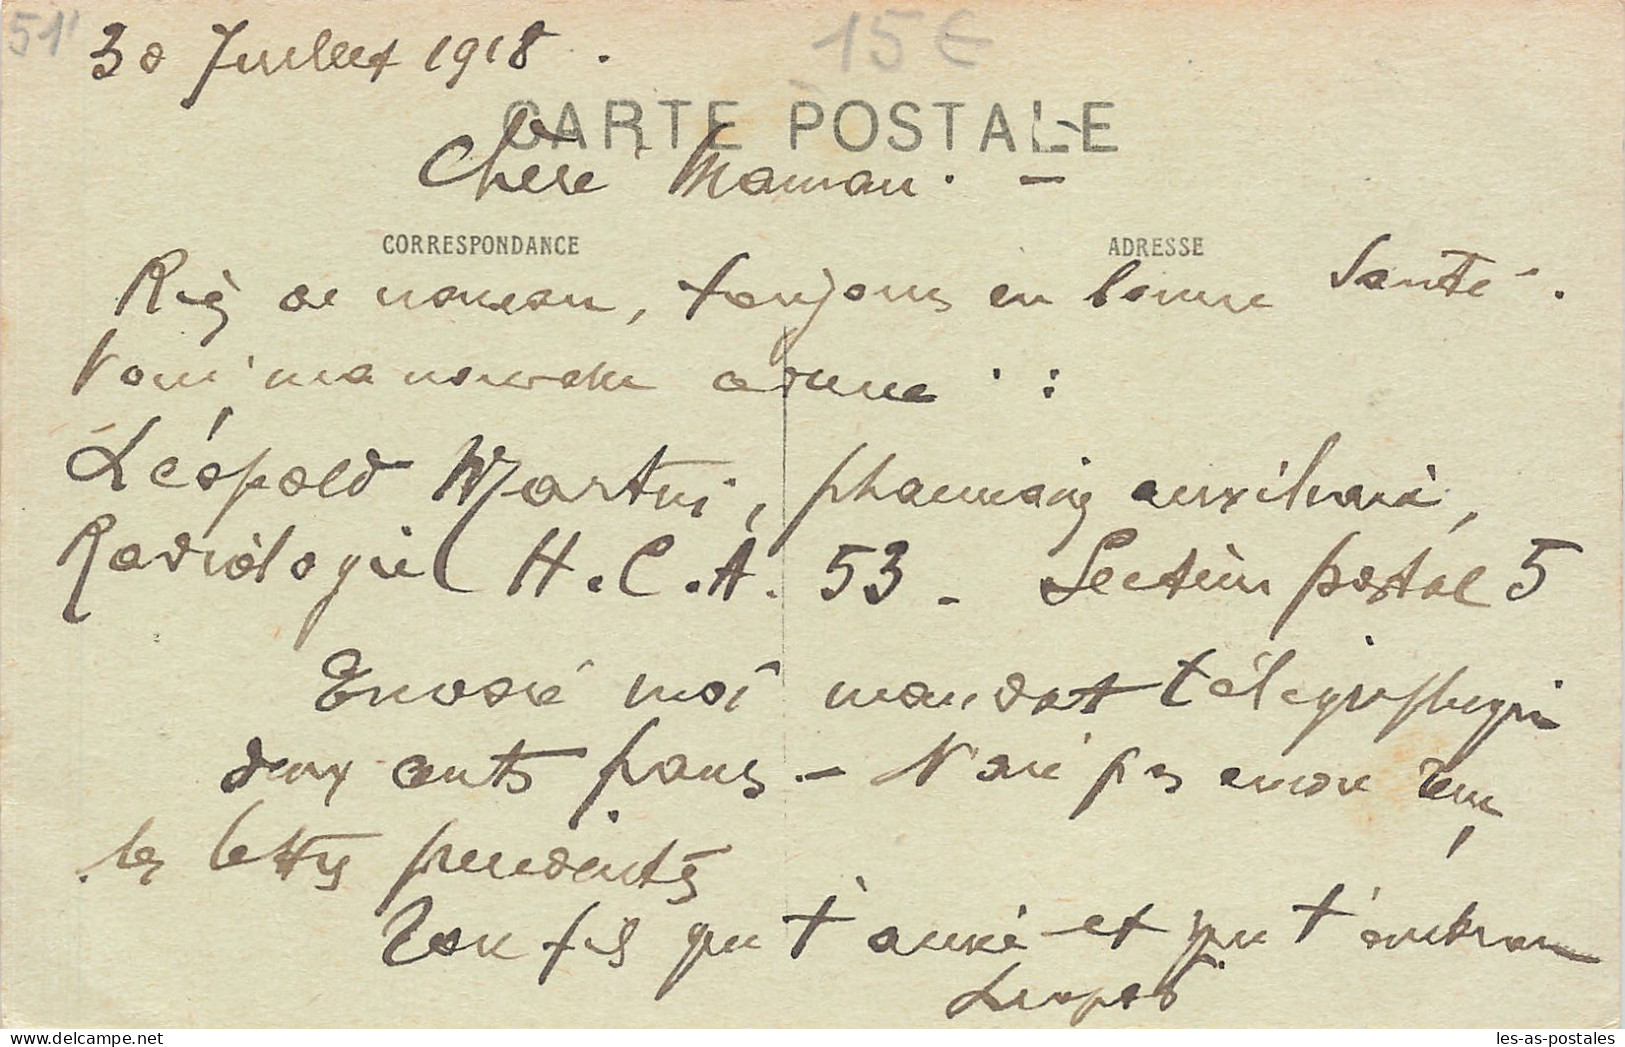 51'
30 Juillet 1918.
15€
CARTE POSTALE
Chère Maman. -
CORRESPONDANCE
ADRESSE
Rien de nouveau, toujours en bonne Santé.
Voici ma nouvelle adresse :
Léopold Martin, pharmacien auxiliaire,
Radiologie H.C.A. 53 - Secteur postal 5
Envoie moi mandat télégraphique
deux cents francs - N'ai pas encore reçu
les lettres précédentes
Ton fils qui t'aime et qui t'embrasse
Léopold
les-as-postales